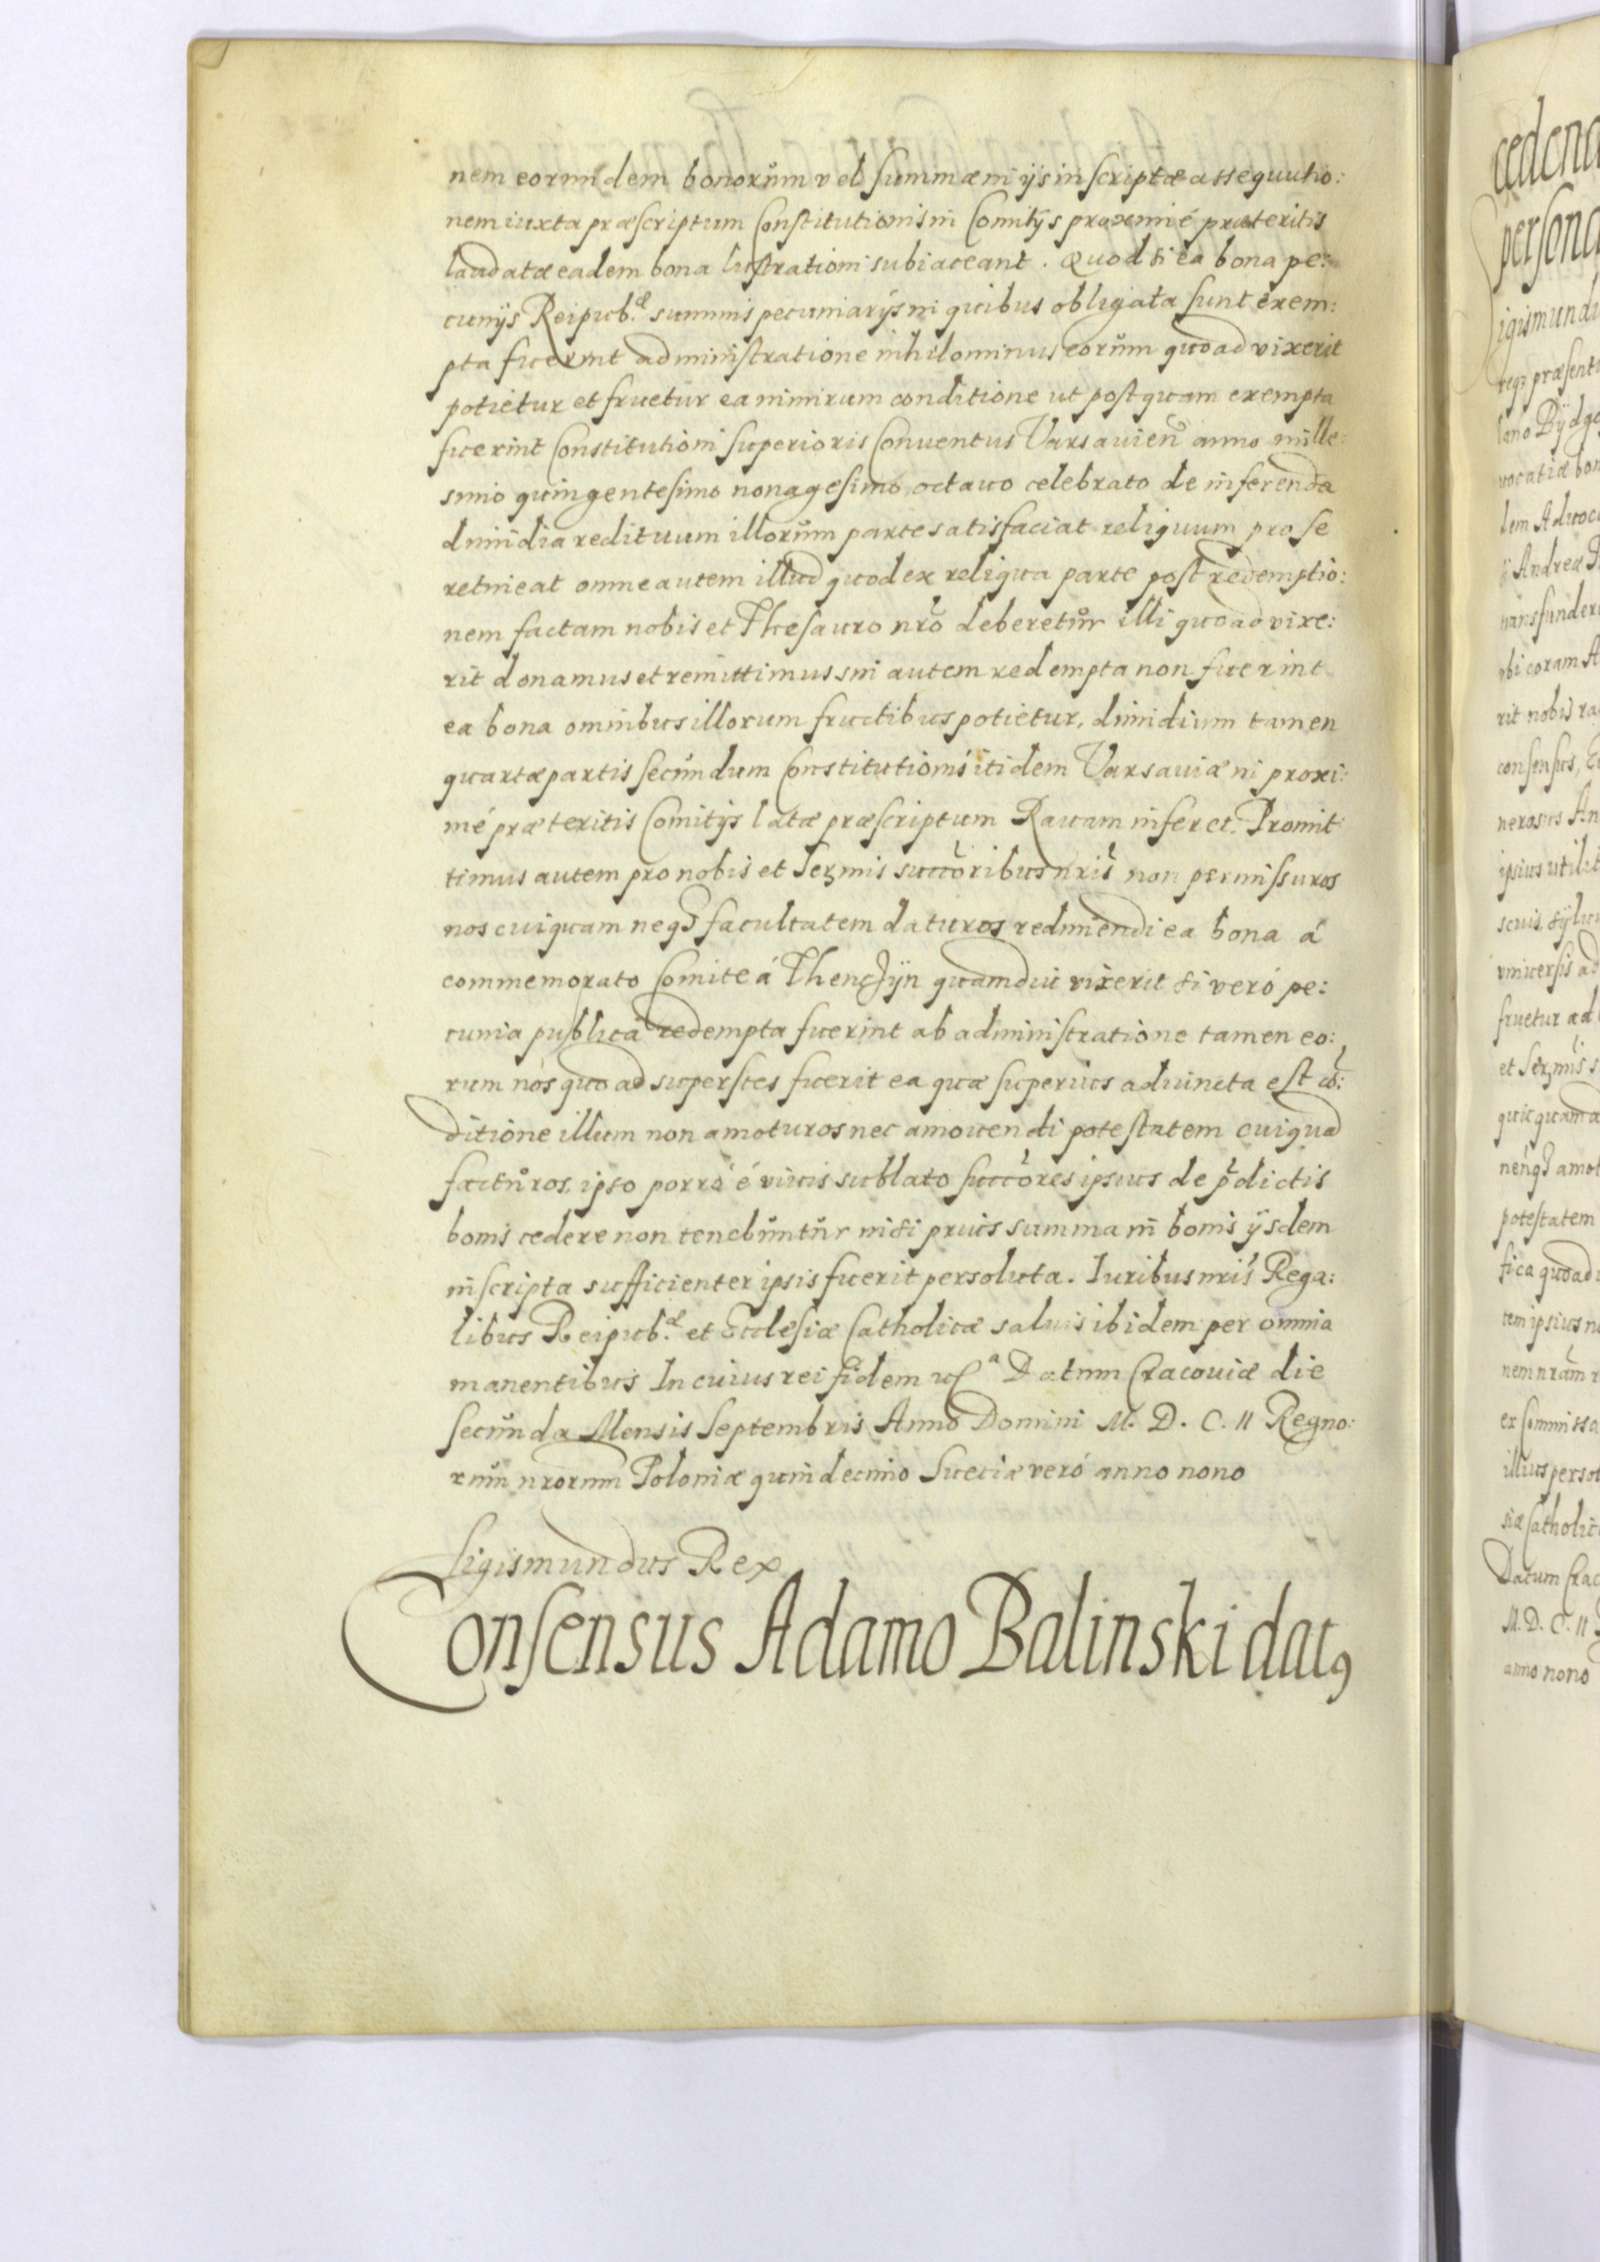 nem eorundem bonorum vel summæ in ijs inscriptæ assequutio:
nem iuxta præscriptum Constitutionis in Comitijs proximé præteritis
laudatæ eadem bona lustrationi subiaceant. Quod si ea bona pe:
cunijs Reipub.æ summis pecuniarijs in quibus obligata sunt exem:
pta fuerint administratione nihilominus eorum quoad vixerit
potietur et fruetur ea nimirum conditione ut postquam exempta
fuerint Constitutioni superioris Conuentus Varsauien anno mille:
simo quingentesimo nonagesimo octauo celebrato de inferenda
dimidia redituum illorum parte satisfaciat reliquum pro se
retineat omne autem illud quod ex reliqua parte post redemptio:
nem factam nobis et Thesauro nrõ deberetur illi quoad vixe:
rit donamus et remittimus sin autem redempta non fuerint
ea bona omnibus illorum fructibus potietur, dimidium tamen
quartæ partis secundum Constitutionis itidem Varsauiæ in proxi:
mé præteritis Comitijs latæ præscriptum Rauam inferet. Promit
timus autem pro nobis et Sermis succoribus nris non permissuros
nos cuiquam neq3 facultatem daturos redimendi ea bona á
commemorato Comite á Thenczÿn quamdiu vixerit si veró pe:
cunia publica redempta fuerint ab administratione tamen eo:
rum nos quoad superstes fuerit ea quæ superius adiuncta est cõ:
ditione illum non amoturos nec amouendi potestatem cuiquã
facturos, ipso porró é viuis sublato succores ipsius de pdictis
bonis cedere non tenebuntur nisi prius summa in bonis ijsdem
inscripta sufficienter ipsis fuerit persoluta. Iuribus nris Rega:
libus Reipub.æ et Ecclesiæ Catholicæ saluis ibidem per omnia
manentibus In cuius rei fidem Datum Cracouiæ die
secunda Mensis Septembris Anno Domini M. D. C. II Regno:
rum nrorum Poloniæ quindecimo Sueciæ veró anno nono
Sigismundus Rex
Consensus Adamo Balinski datq
cedend
persona
igismundu
req3 præsenti
lano Bÿdgo
vocatiæ bon
lem Aduoc
ÿ Andrea
transfundere
vbi coram
rit nobis ra
consensus,
nerosus An
ipsius vtilit
scuis sÿlu
vniuersis ad
fruetur ad
et Sermis s
quicquam a
nenq3 amot
potestatem
fica quoad
tem ipsius n
nem nram
er Commissa
illius persol
siæ Catholic
Datum Crac
M. D. C. II
anno nono